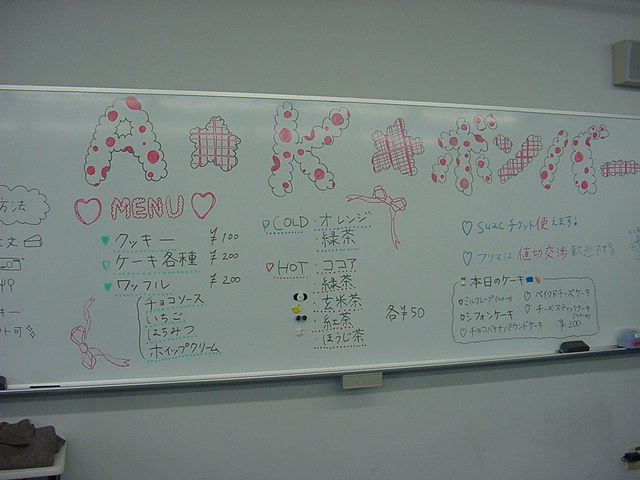 A☆K☆ボンバー
方法
MENU
クッキー ¥100
ケーキ各種 ¥200
ワッフル ¥200
チョコソース
いちご
はちみつ
ホイップクリーム
COLD オレンジ
緑茶
HOT ココア
緑茶
玄米茶
紅茶
ほうじ茶
各¥50
suacチケット使えます!
フリマは値切交渉歓迎です!
本日のケーキ
ミルクレープ
シフォンケーキ
チョコバナナパウンドケーキ
ベイクドチーズケーキ
チーズスティックケーキ
¥200